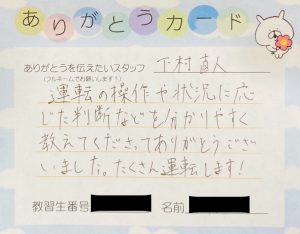 ありがとうカード
ありがとうを伝えたいスタッフ 下村直人
(フルネームでお願いします！)
運転の操作や状況に応
じた判断などを分かりやすく
教えてくださってありがとうござ
いました。たくさん運転します！
教習生番号 名前